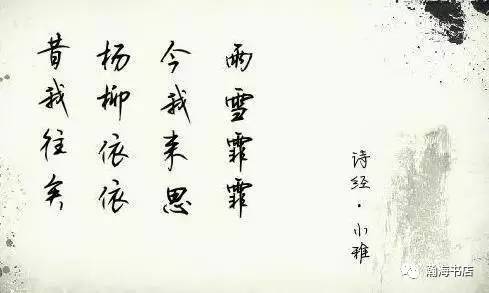 昔我往矣
杨柳依依
今我来思
雨雪霏霏
诗经·小雅
瀚海书店